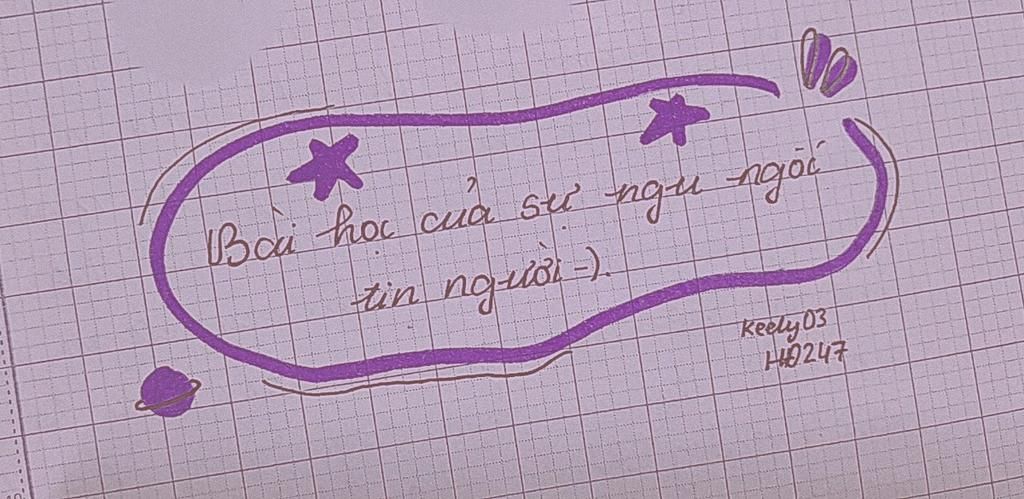 Bài học của sự ngu ngốc
tin người :-).
Keely03
HĐ247